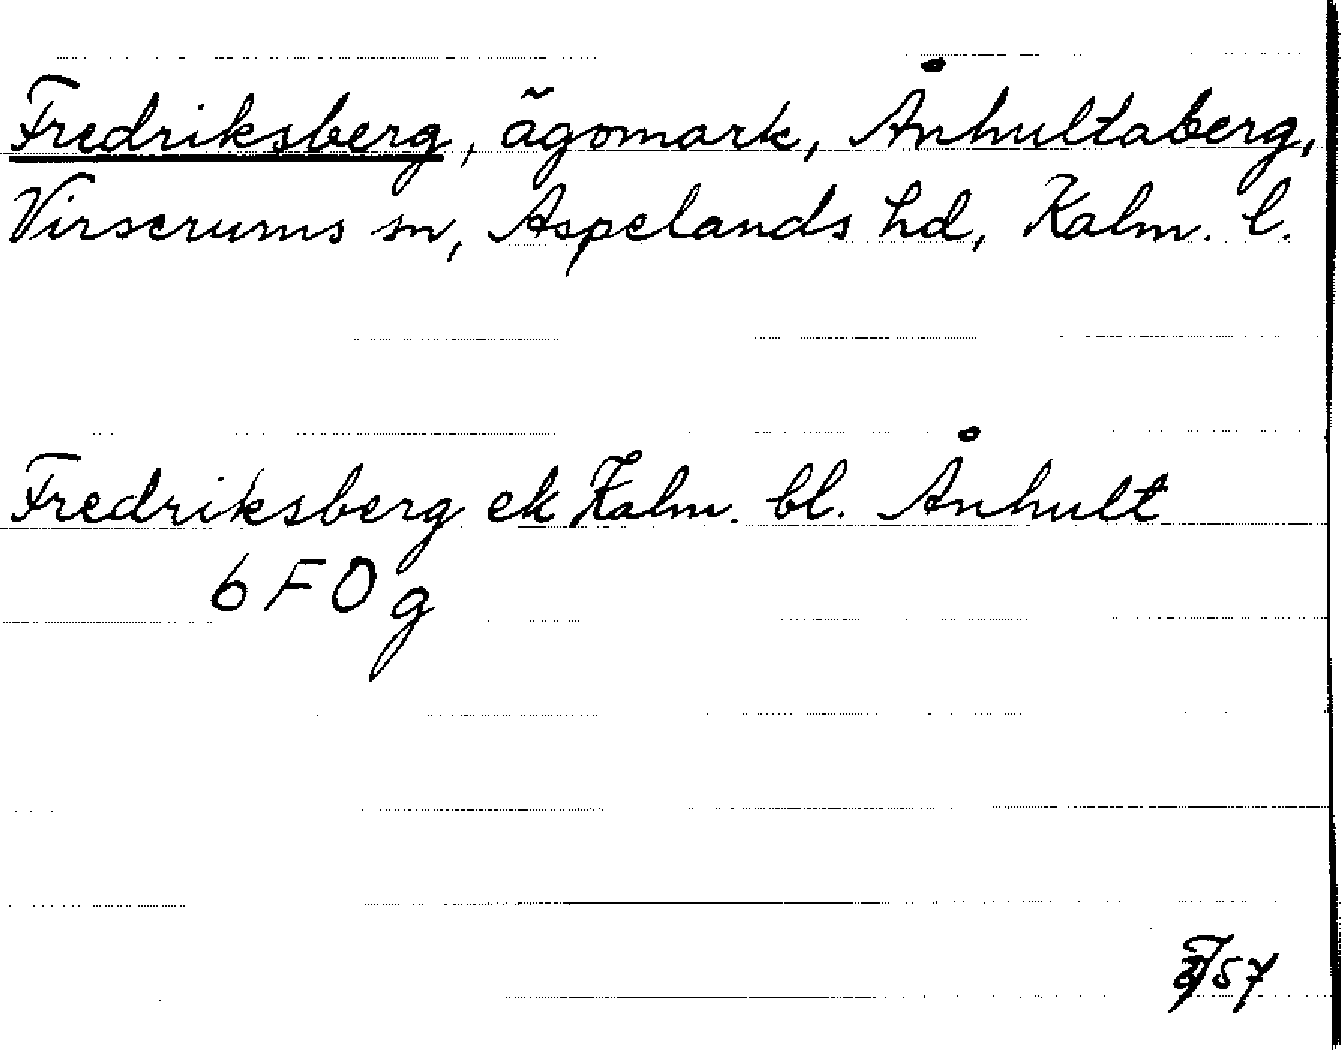 Fredriksberg, ägomark, Ånhultaberg,
Virserums sn, Aspelands hd, Kalm. l.
Fredriksberg ek Kalm. bl. Ånhult
6 F 0 g
/57